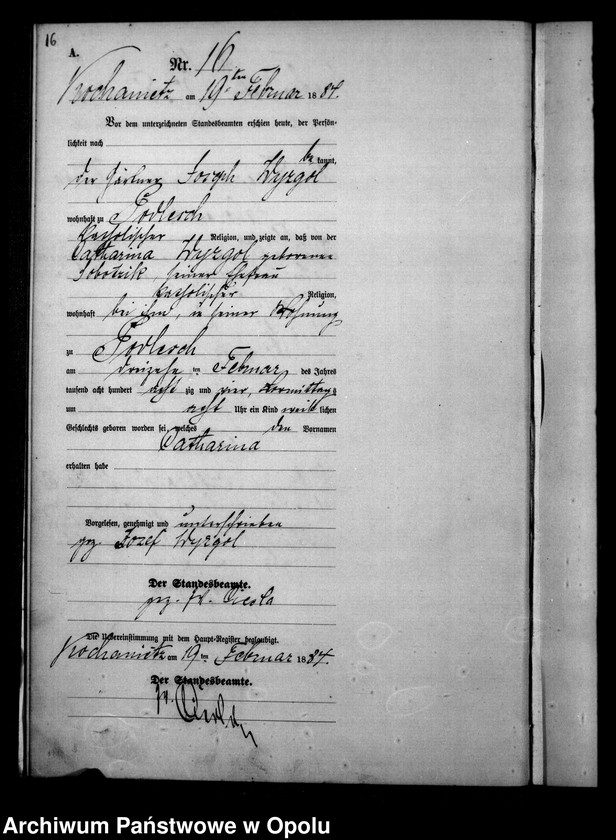 16
A.
Nr. 16
Kochanietz am 19ten Februar 1884.
Vor dem unterzeichneten Standesbeamten erschien heute, der Persön-
lichkeit nach
bekannt,
der Gärtner Joseph Wyzgol
wohnhaft zu Podlesch
katholischer Religion, und zeigte an, daß von der
Catharina Wyzgol geborenen
Sobotzik, seiner Ehefrau
katholischer Religion,
wohnhaft bei ihm, in seiner Wohnung
zu Podlesch
am dreizehn ten Februar des Jahres
tausend acht hundert acht zig und vier, Vormittags
um acht Uhr ein Kind weib lichen
Geschlechts geboren worden sei, welches den Vornamen
Catharina
erhalten habe
Vorgelesen, genehmigt und unterschrieben
gez. Jozef Wyzgol
Der Standesbeamte.
gez. Fr. Ciesla
Die Uebereinstimmung mit dem Haupt-Register beglaubigt.
Kochanietz am 19 ten Februar 1884.
Der Standesbeamte.
Fr. Ciesla
Archiwum Państwowe w Opolu